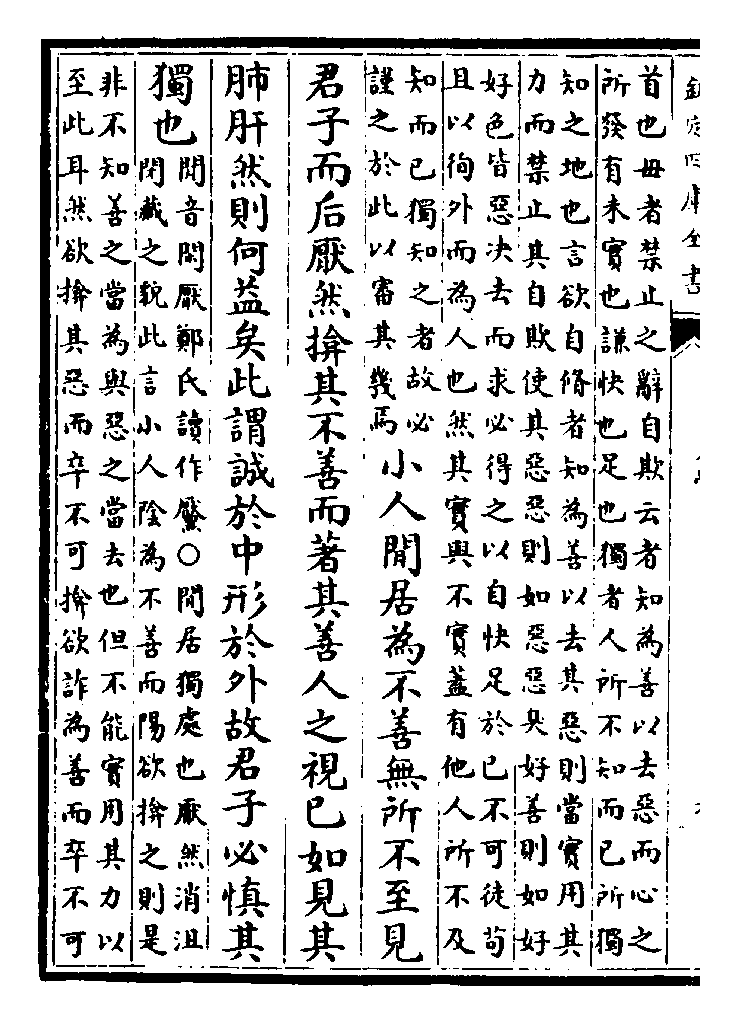 欽定四庫全書
首也毋者禁止之辭自欺云者知為善以去惡而心之
所發有未實也謙快也足也獨者人所不知而已所獨
知之地也言欲自脩者知為善以去其惡則當實用其
力而禁止其自欺使其惡惡則如惡惡臭好善則如好
好色皆惡決去而求必得之以自快足於已不可徒苟
且以徇外而為人也然其實與不實蓋有他人所不及
知而已獨知之者故必
謹之於此以審其幾焉
小人閒居為不善無所不至見
君子而后厭然揜其不善而著其善人之視已如見其
肺肝然則何益矣此謂誠於中形於外故君子必慎其
獨也
閒音閑厭鄭氏讀作黶○閒居獨處也厭然消沮
閉藏之貌此言小人陰為不善而陽欲揜之則是
非不知善之當為與惡之當去也但不能實用其力以
至此耳然欲揜其惡而卒不可揜欲詐為善而卒不可